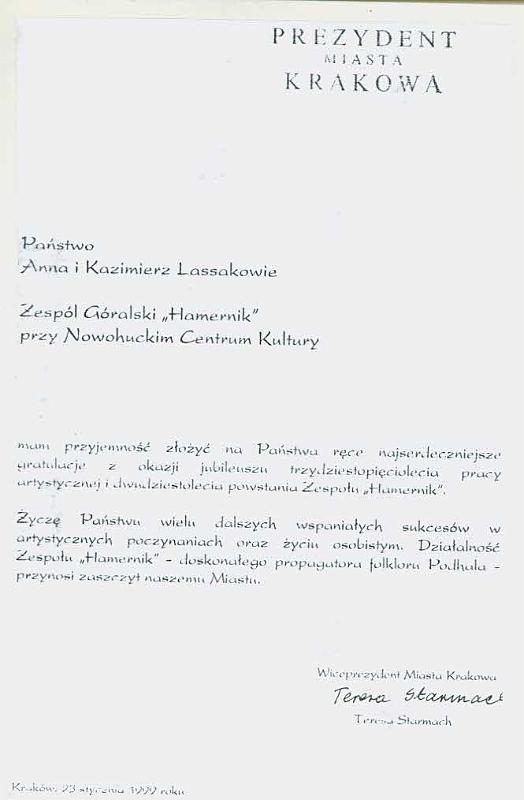 PREZYDENT
MIASTA
KRAKOWA
Państwo
Anna i Kazimierz Lassakowie
Zespól Góralski „Hamernik"
przy Nowohuckim Centrum Kultury
mam przyjemność złożyć na Państwa ręce najserdeczniejsze
gratulacje z okazji jubileuszu trzydziestopięciolecia pracy
artystycznej i dwudziestolecia powstania Zespołu „Hamernik".
Życzę Państwu wielu dalszych wspaniałych sukcesów w
artystycznych poczynaniach oraz życiu osobistym. Działalność
Zespołu „Hamernik" - doskonałego propagatora folkloru Podhala -
przynosi zaszczyt naszemu Miastu.
Wiceprezydent Miasta Krakowa
Teresa Starmach
Teresa Starmach
Kraków, 23 stycznia 1999 roku